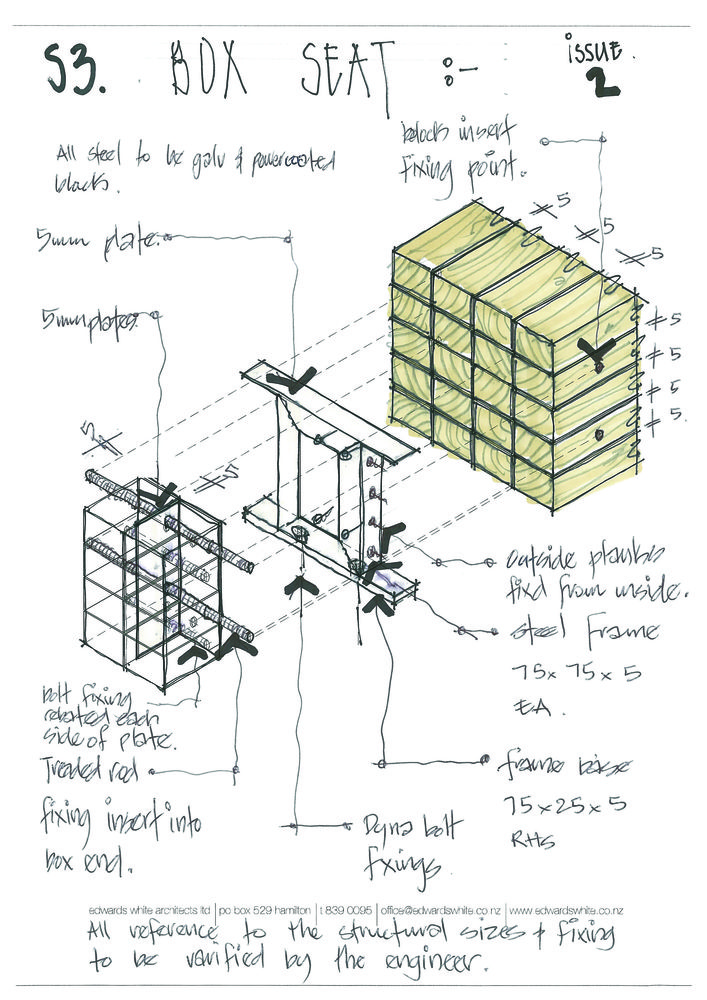 S3. BOX SEAT :- issue. 2
All steel to be galv & powercoated
black.
block insert
fixing point.
5mm plate.
5mm plates.
≠5
≠5
≠5
≠5
≠5
≠5
≠5
≠5
≠5
outside planks
fixd from inside.
steel frame
75x 75 x 5
EA.
bolt fixing
rebated each
side of plate.
Treaded rod
fixing insert into
box end.
frame base
75x25x5
RHS
Dyna bolt
fixings.
edwards white architects ltd | po box 529 hamilton | t 839 0095 | office@edwardswhite.co.nz | www.edwardswhite.co.nz
All reference to the structural sizes & fixing
to be varified by the engineer.